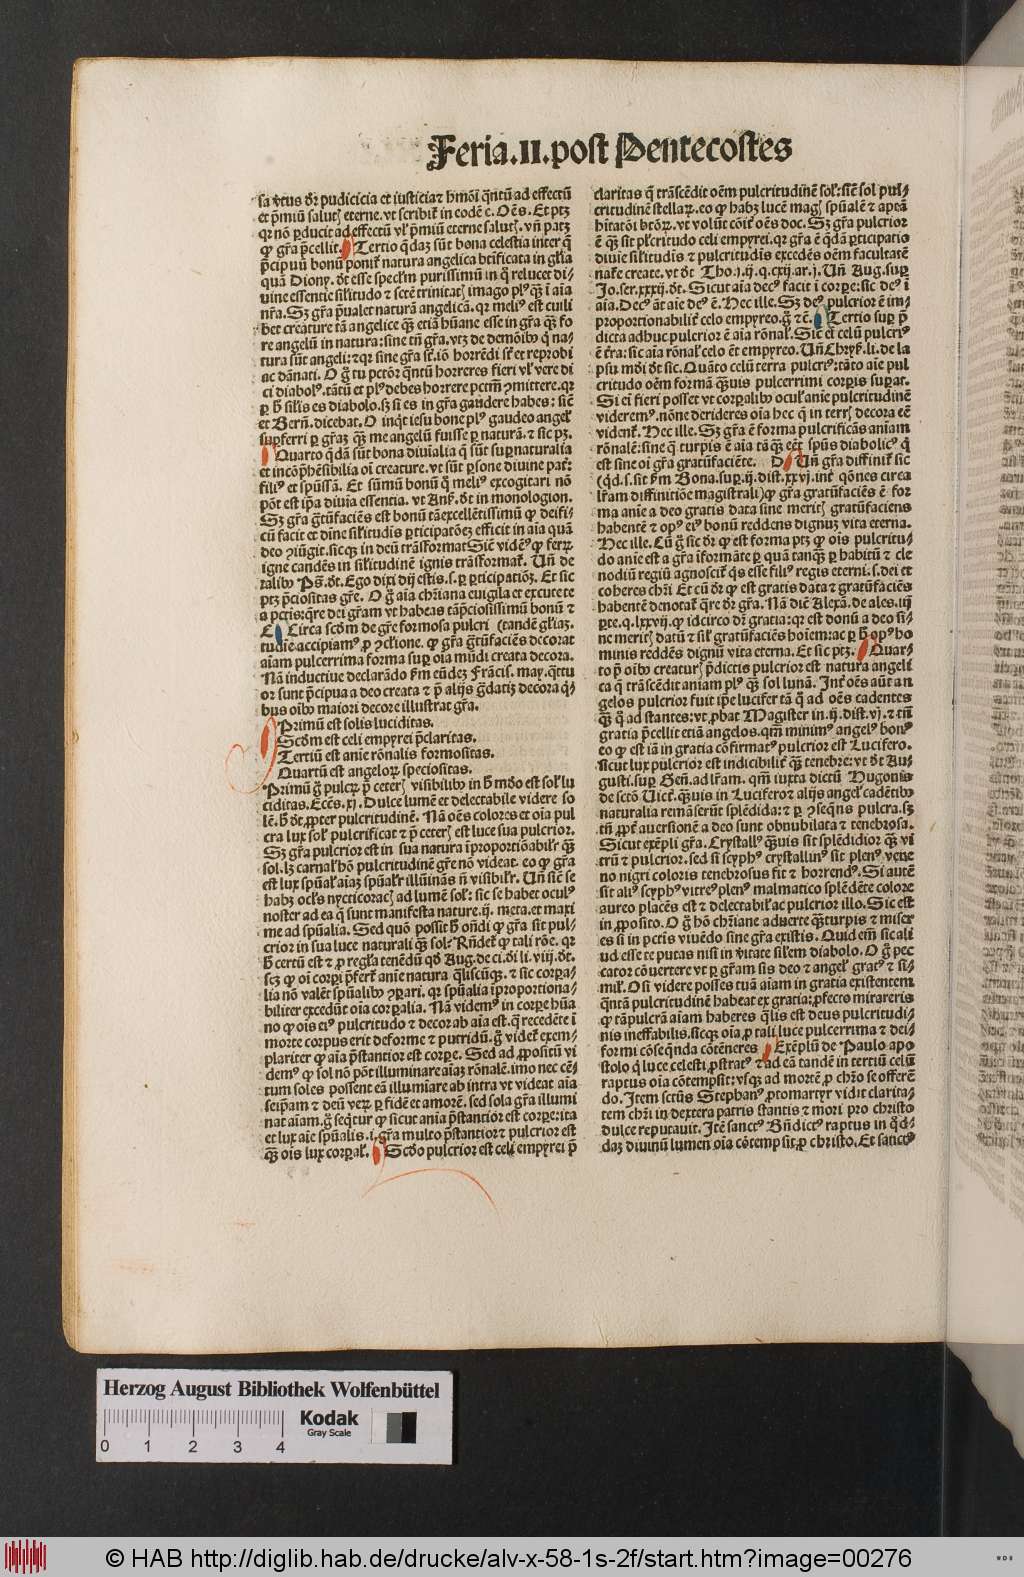 Feria.II.post Pentecostes
sa vtus dr pudicicia et iusticiaꝫ hmõi q̃ntũ ad effectũ
et p̃miũ saluti eterne. vt scribit in eodẽ c. Oẽs. Et ptꝫ
qꝛ nõ ꝑducit ad effectũ vl p̃miũ eterne salut. vñ patꝫ
ꝙ grã p̃cellit. Tertio q̃daꝫ sũt bona celestia inter q̃
p̃cipuũ bonũ ponit natura angelica btificata in glia
quã Diony. dt esse speclm purissimũ in q̃ relucet di-
uine essentie silitudo ⁊ scte trinitat imago
nra. Sꝫ grã p̃ualet naturã angelicã. qꝛ meli est cuili
bet creature tã angelice q̃ꝫ etiã hũane esse in grã q̃ꝫ fo
re angelũ in natura: sine tñ grã. vtꝫ de demõibꝰ q̃ na-
tura sũt angeli: ⁊ qꝛ sine grã st. iõ horrẽdi st et reprobi
ac dãnati. O g̃ tu pctor q̃ntũ horreres fieri vl vere di
ci diabolꝰ. tãtũ et plꝰ debes horrere pctm ꝯmittere. qꝛ
ꝑ h̃ silis es diabolo. sꝫ si es in grã gaudere habes: sic
et Bern. dicebat. O inq̃t iesu bone plꝰ gaudeo angel
supferri ꝑ grãꝫ q̃ꝫ me angelũ fuisse ꝑ naturã. ⁊ sic pꝫ.
Quarto q̃dã sũt bona diuialia q̃ sũt suꝑnaturalia
et incõp̃hẽsibilia oi creature. vt sũt ꝑsone diuine pat:
filiꝰ et spũssã. Et sũmũ bonũ q̃ meliꝰ excogitari nõ
põt est ip̃a diuia essentia. vt Ans. dt in monologion.
Sꝫ grã g̃tũfaciẽs est bonũ tã excellẽtissimũ ꝙ deifi-
cũ facit et diuine silitudis ꝑticipatõeꝫ efficit in aia quã
deo ꝯiũgit. sicqꝫ in deũ trãsformat Sicut videmꝰ ꝙ ferꝝ
igne candẽs in silitudinẽ ignis trãsformat. Vñ de
talibꝰ Ps. dt. Ego dixi dij estis. s. ꝑ ꝑticipatiõꝫ. Et sic
ptꝫ p̃ciositas gre. O g̃ aia chriana euigila et excutete
a pctis: q̃re dei grãm vt habeas tã p̃ciosissimũ bonũ ⁊
C Circa scdm de gre formosa pulcri (tandẽ gliaꝫ.
tudie accipiamꝰ ꝓ ꝯclione. ꝙ grã g̃tũfaciẽs decorat
aiam pulcerrima forma suꝑ oia mũdi creata decora.
Nã inductiue declarãdo ẽm eũdeꝫ Frãcis. may. q̃ttu
or sunt p̃cipua a deo creata ⁊ p̃ alijs g̃datiꝫ decora q̃-
bus oibꝰ maiori decore illustrat grã.
Primũ est solis luciditas.
Scdm est celi empyrei p̃claritas.
Tertiũ est anie rõnalis formositas.
Quartũ est angeloꝝ speciositas.
Primũ g̃ pulcꝝ p̃ ceteri visibilibꝰ in h̃ mũdo est sol lu
ciditas. Eccs. xj. Dulce lumẽ et delectabile videre so
lẽ. h̃ dt ꝓpter pulcritudinẽ. Nã oẽs colores et oia pul
cra lux sol pulcrificat ⁊ p̃ ceteri est luce sua pulcrior.
Sꝫ grã pulcrior est in sua natura ip̃roportionabilr q̃ꝫ
sol. lꝫ carnal hõ pulcritudinẽ gre nõ videat. eo ꝙ grã
est lux spũal aiaꝫ spũalr illũinãs ñ visibilr. Vñ sic se
habꝫ oclꝰs nycticorac ad lumẽ sol: sic se habet oculꝰ
noster ad ea q̃ sunt manifesta nature. ij. meta. et maxi
me ad spũalia. Sed quõ possit h̃ oñdi ꝙ grã sit pul-
crior in sua luce naturali q̃ꝫ sol? Rñdet ꝙ tali rõe. qꝛ
h̃ certũ est ⁊ ꝓ regla tenẽdũ qd̃ Aug. de ci. di li. viij. dt.
scꝫ ꝙ oi corpi p̃fert anie natura q̃liscũqꝫ. ⁊ sic corpa-
lia nõ valẽt spũalibꝰ ꝯpari. qꝛ spũalia ip̃roportiona-
biliter excedũt oia corpalia. Nã videmꝰ in corpe hũa
no ꝙ ois eiꝰ pulcritudo ⁊ decor ab aia est. q̃ recedẽte i
morte corpus erit deforme ⁊ putridũ. g̃ videt exem-
plariter ꝙ aia p̃stantior est corpe. Sed ad ꝓpositũ vi
demꝰ ꝙ sol nõ põt illuminare aiaꝫ rõnalẽ. imo nec cẽ-
tum soles possent eã illumiare ab intra vt videat aia
seip̃am ⁊ deũ veꝝ ꝑ fidẽ et amorẽ. sed sola grã illumi
nat aiam. g̃ seq̃tur ꝙ sicut ania p̃stantior est corpe: ita
et lux aie spũalis. i. grã multo p̃stantior ⁊ pulcrior est
q̃ꝫ ois lux corpal. Scdo pulcrior est celi empyrei p̃
claritas q̃ trãscẽdit oẽm pulcritudinẽ sol: sicut sol pul-
critudinẽ stellaꝝ. eo ꝙ habꝫ lucẽ magꝭ spũalẽ ⁊ aptã
hitatõi btõꝝ. vt volũt cõit oẽs doc. Sꝫ grã pulcrior
ẽ q̃ꝫ sit plcritudo celi empyrei. qꝛ grã ẽ q̃dã ꝑticipatio
diuie silitudis ⁊ pulcritudis excedẽs oẽm facultatẽ
nature create. vt dt Tho. j. ij. q. cxij. ar. j. Vñ Aug. suꝑ
Jo. ser. xxxij. dt. Sicut aia decꝰ facit i corpe: sic deꝰ i
aia. Decꝰ at aie deꝰ ẽ. Hec ille. Sꝫ deꝰ pulcrior ẽ im-
proportionabilit celo empyreo. g̃ ⁊c. Tertio suꝑ p̃
dicta adhuc pulcrior ẽ aia rõnal. Sicut et celũ pulcriꝰ
ẽ terra: sic aia rõnal celo ẽt empyreo. Vñ Chrys. li. de la
psu mũdi dt sic. Quãto celũ terra pulcriꝰ: tãto aie pul
critudo oẽm formã q̃ꝫuis pulcerrimi corpis suꝑat.
Si ei fieri posset vt corpalibꝰ ocul anie pulcritudinẽ
videremꝰ. nõne derideres oia hec q̃ in terri decora eẽ
vident. Hec ille. Sꝫ grã ẽ forma pulcrificãs aniam
rõnalẽ: sine q̃ turpis ẽ aia tãq̃ꝫ eẽt spũs diabolicꝰ q̃
est sine oi grã gratũfaciẽte. D Vñ grã diffinit sic
(qd. s. sit ẽm Bona. suꝑ. ij. dist. xxvj. int qões circa
lram diffinitiõe magistrali) ꝙ grã gratũfaciẽs ẽ for
ma anie a deo gratis data sine merit gratũfaciens
habentẽ ⁊ opꝰ eiꝰ bonũ reddens dignuꝫ vita eterna.
Hec ille. Cũ g̃ sic dr ꝙ est forma ptꝫ ꝙ ois pulcritu-
do anie est a grã iformãte ꝑ quã tanq̃ꝫ ꝑ habitũ ⁊ cle
nodiũ regiũ agnoscit q̃s esse filiꝰ regis eterni. s. dei et
coheres chri. Et cũ dr ꝙ est gratis data ⁊ gratũfaciẽs
habentẽ denotat q̃re dr grã. Nã dicit Alexã. de ales. iij
ꝑte. q. lxxvij. ꝙ idcirco dr gratia: qꝛ est donũ a deo si-
ne merit datũ ⁊ sil gratũfaciẽs hoiem: ac ꝑ h̃ opꝰ ho
minis reddẽs dignũ vita eterna. Et sic ptꝫ. Quar-
to p̃ oibꝰ creaturi p̃dictis pulcrior est natura angeli
ca q̃ trãscẽdit aniam plꝰ q̃ꝫ sol lunã. Int oẽs aũt an
gelos pulcrior fuit ip̃e lucifer tã q̃ ad oẽs cadentes
q̃ꝫ q̃ ad stantes: vt ꝓbat Magister in. ij. dist. vj. ⁊ tñ
gratia p̃cellit etiã angelos. qm minimꝰ angelꝰ bonꝰ
eo ꝙ est iã in gratia cõfirmatꝰ pulcrior est Lucifero.
sicut lux pulcrior est indicibilit q̃ꝫ tenebre: vt dt Au-
gusti. suꝑ Gen. ad lram. qm iuxta dictũ Hugonis
de sctõ Vict. q̃ꝫuis in Lucifero ⁊ alijs angel cadẽtibꝰ
naturalia remãserũt splẽdida: ⁊ ꝑ ꝯseq̃ns pulcra. sꝫ
tñ ꝓpt auersionẽ a deo sunt obnubilata ⁊ tenebrosa.
Sicut exẽpli grã. Crystallꝰ q̃ꝫuis sit splẽdidior q̃ꝫ vi
trũ ⁊ pulcrior. sed si scyphꝰ crystallinꝰ sit plenꝰ vene
no nigri coloris tenebrosus fit ⁊ horrendꝰ. Si autẽ
sit aliꝰ scyphꝰ vitreꝰ plenꝰ malmatico splẽdẽte colore
aureo placẽs est ⁊ delectabilꝭ ac pulcrior illo. Sic est
in ꝓposito. O g̃ hõ chriane aduerte q̃ꝫ turpis ⁊ miser
es si in pctis viuẽdo sine grã existis. Quid em sic ali
ud esse te putas nisi in vitate silem diabolo. O g̃ pec
cator cõuertere vt ꝑ grãm sis deo ⁊ angel gratꝰ ⁊ si-
mil. O si videre posses tuã aiam in gratia existentem
q̃ntã pulcritudinẽ habeat ex gratia: ꝓfecto mirareris
ꝙ tã pulcrã aiam haberes q̃lis est deus pulcritudi-
nis ineffabilis. sicqꝫ oia ꝓ tali luce pulcerrima ⁊ dei-
formi cõseq̃nda cõtẽneres Exẽplũ de Paulo apo
stolo q̃ luce celesti ꝓstratꝰ ⁊ ad eã tandẽ in tertiũ celũ
raptus oia cõtempsit: vsqꝫ ad mortẽ ꝓ chro se offeren
do. Item sctus Stephanꝰ ꝓtomartyr vidit clarita-
tem chri in dextera patris stantis ⁊ mori pro christo
dulce reputauit. Itẽ sanctꝰ Bñdictꝰ raptus in q̃d-
daꝫ diuinũ lumen oia cõtempsit ꝓ christo. Et sanctꝰ
Herzog August Bibliothek Wolfenbüttel
Kodak
Gray Scale
0 1 2 3 4
© HAB http://diglib.hab.de/drucke/alv-x-58-1s-2f/start.htm?image=00276